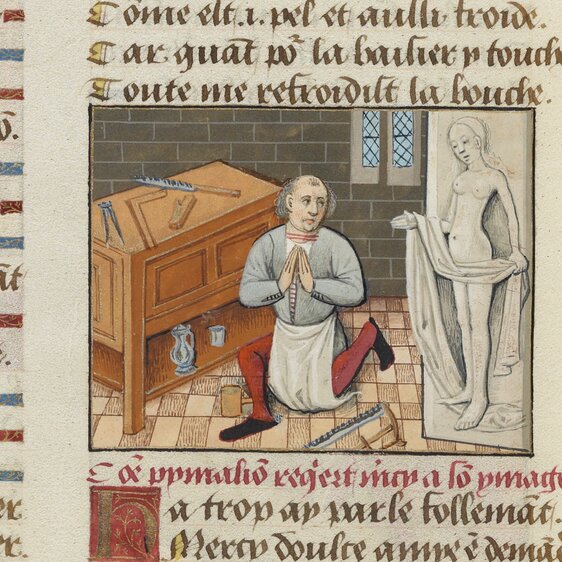 Cõme est .i. pel et aussi froide.
Car quãt po² la baisier y touche
Toute me refroidist la bouche.
Cõe pymaliõ reqͥert mͥcy a sõ ymage
Ha trop ay parle follemãt.
Mercy doulce amye ẽ demãd
õ.
ãt
e.
er
er.